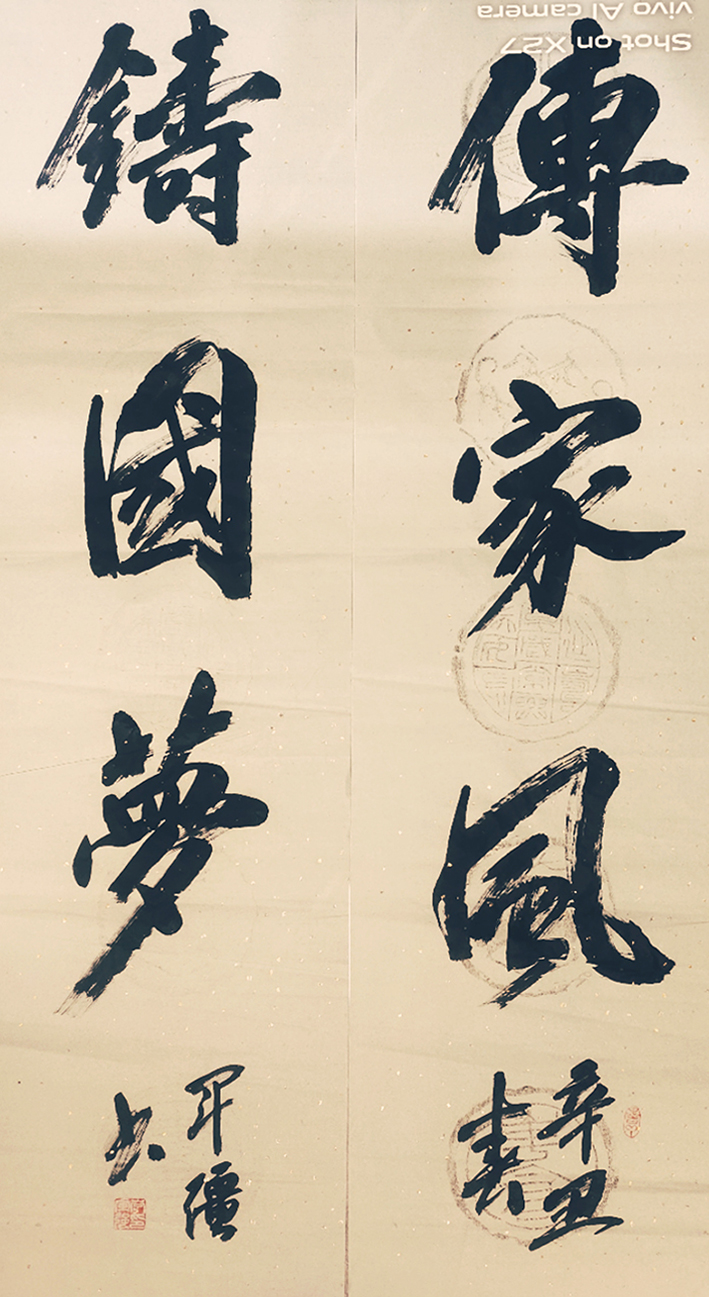 傳家風
辛丑
春
鑄國夢
軍疆
书
Shot on X27
vivo AI camera